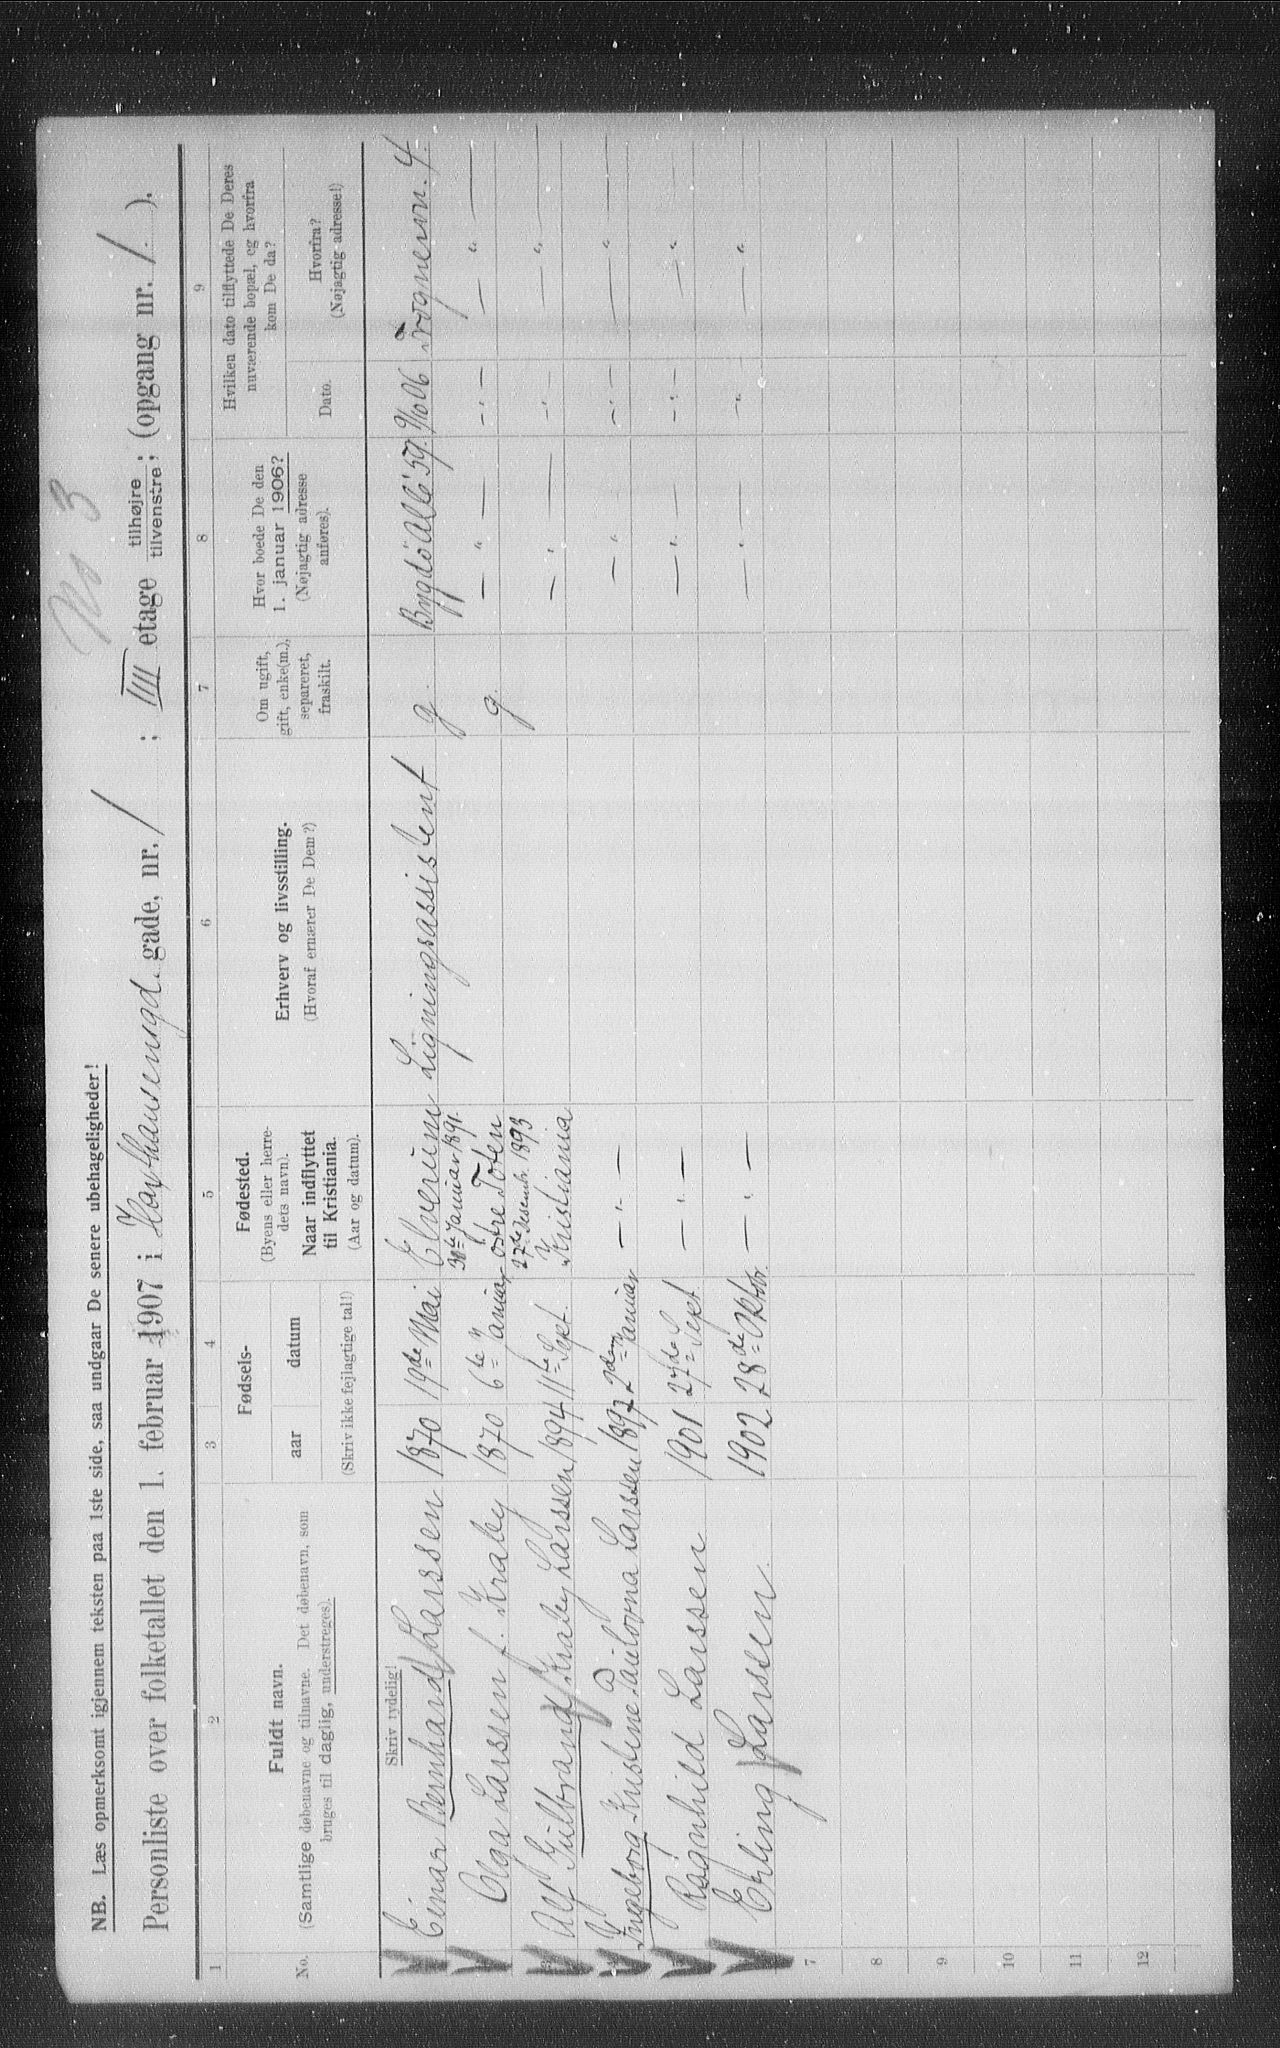 No 3
NB. Læs opmerksomt igjennem teksten paa 1ste side, saa undgaar De senere ubehageligheder!
Personliste over folketallet den 1. februar 1907 i Haxthausensgd. gade, nr. 1 ; IIII etage tilhøjre tilvenstre; (opgang nr. 1. ).
1 2 3 4 5 6 7 8 9
No. Fuldt navn. (Samtlige døbenavne og tilnavne. Det døbenavn, som bruges til daglig, understreges).
Fødsels- aar datum (Skriv ikke fejlagtige tal!)
Fødested. (Byens eller herredets navn). Naar indflyttet til Kristiania. (Aar og datum).
Erhverv og livsstilling. (Hvoraf ernærer De Dem?)
Om ugift, gift, enke(m.), separeret, fraskilt.
Hvor boede De den 1. januar 1906? (Nøjagtig adresse anføres).
Hvilken dato tilflyttede De Deres nuværende bopæl, og hvorfra kom De da?
Dato. Hvorfra? (Nøjagtig adresse!)
Skriv tydelig!
Einar Bernhard Larssen 1870 19de Mai Elverum Ligningsassistent g. Bygdö Allé 59. 1/10 06 Frognervn. 4.
30te Januar 1891.
Olga Larssen f. Kraby 1870 6te Januar Östre Toten g. — " — — " — — " —
27de Desembr. 1893
Alf Gulbrand Kraby Larssen 1894 11te Sept. Kristiania — " — — " — — " —
Ingeborg Kristine Paulovna Larssen 1897 2den Januar — " — — " — — " — — " —
Ragnhild Larssen 1901 27de Sept. — " — — " — — " — — " —
Erling Larssen 1902 28de Oktbr. — " — — " — — " — — " —
7
8
9
10
11
12